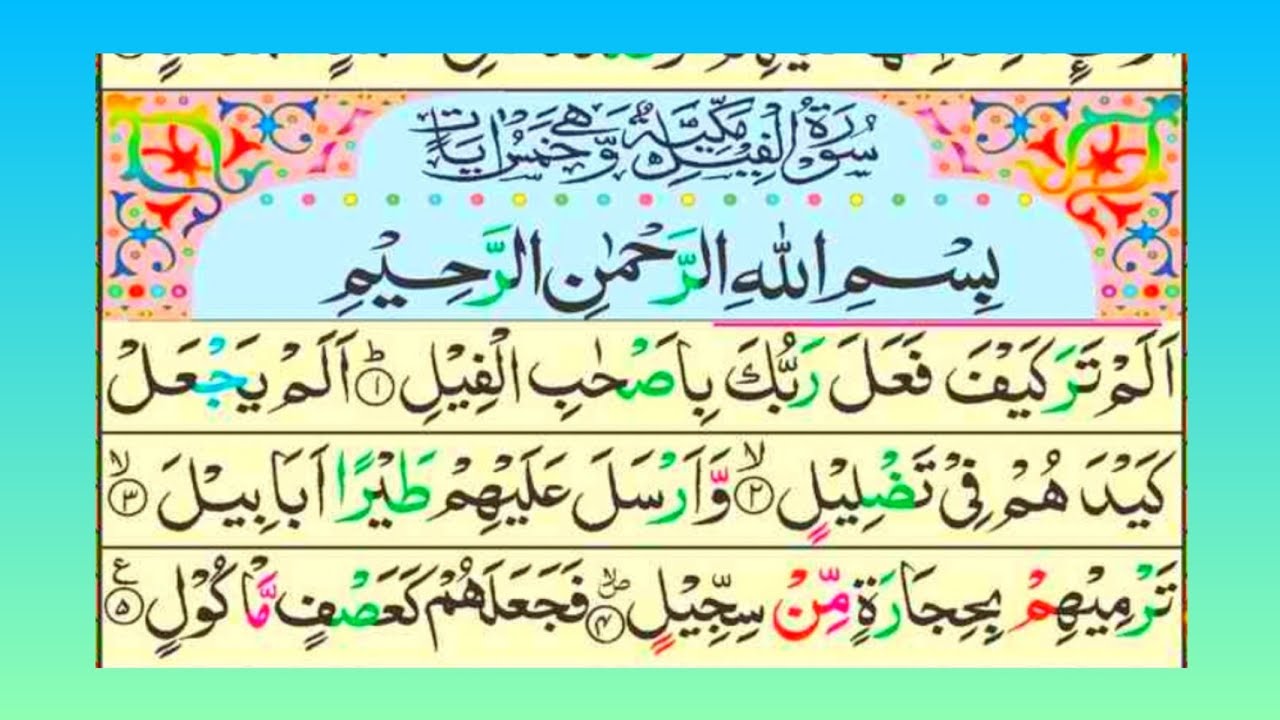 سُوْرَةُ الْفِيْلِ مَكِّيَّةٌ وَّهِيَ خَمْسُ اٰيَاتٍ
بِسْمِ اللّٰهِ الرَّحْمٰنِ الرَّحِيْمِ
اَلَمْ تَرَ كَيْفَ فَعَلَ رَبُّكَ بِاَصْحٰبِ الْفِيْلِ ؕ ۱ اَلَمْ يَجْعَلْ
كَيْدَ هُمْ فِيْ تَضْلِيْلٍ ۙ ۲ وَّاَرْسَلَ عَلَيْهِمْ طَيْرًا اَبَابِيْلَ ۙ ۳
تَرْمِيْهِمْ بِحِجَارَةٍ مِّنْ سِجِّيْلٍ ۴ فَجَعَلَهُمْ كَعَصْفٍ مَّاْكُوْلٍ ۵ ع